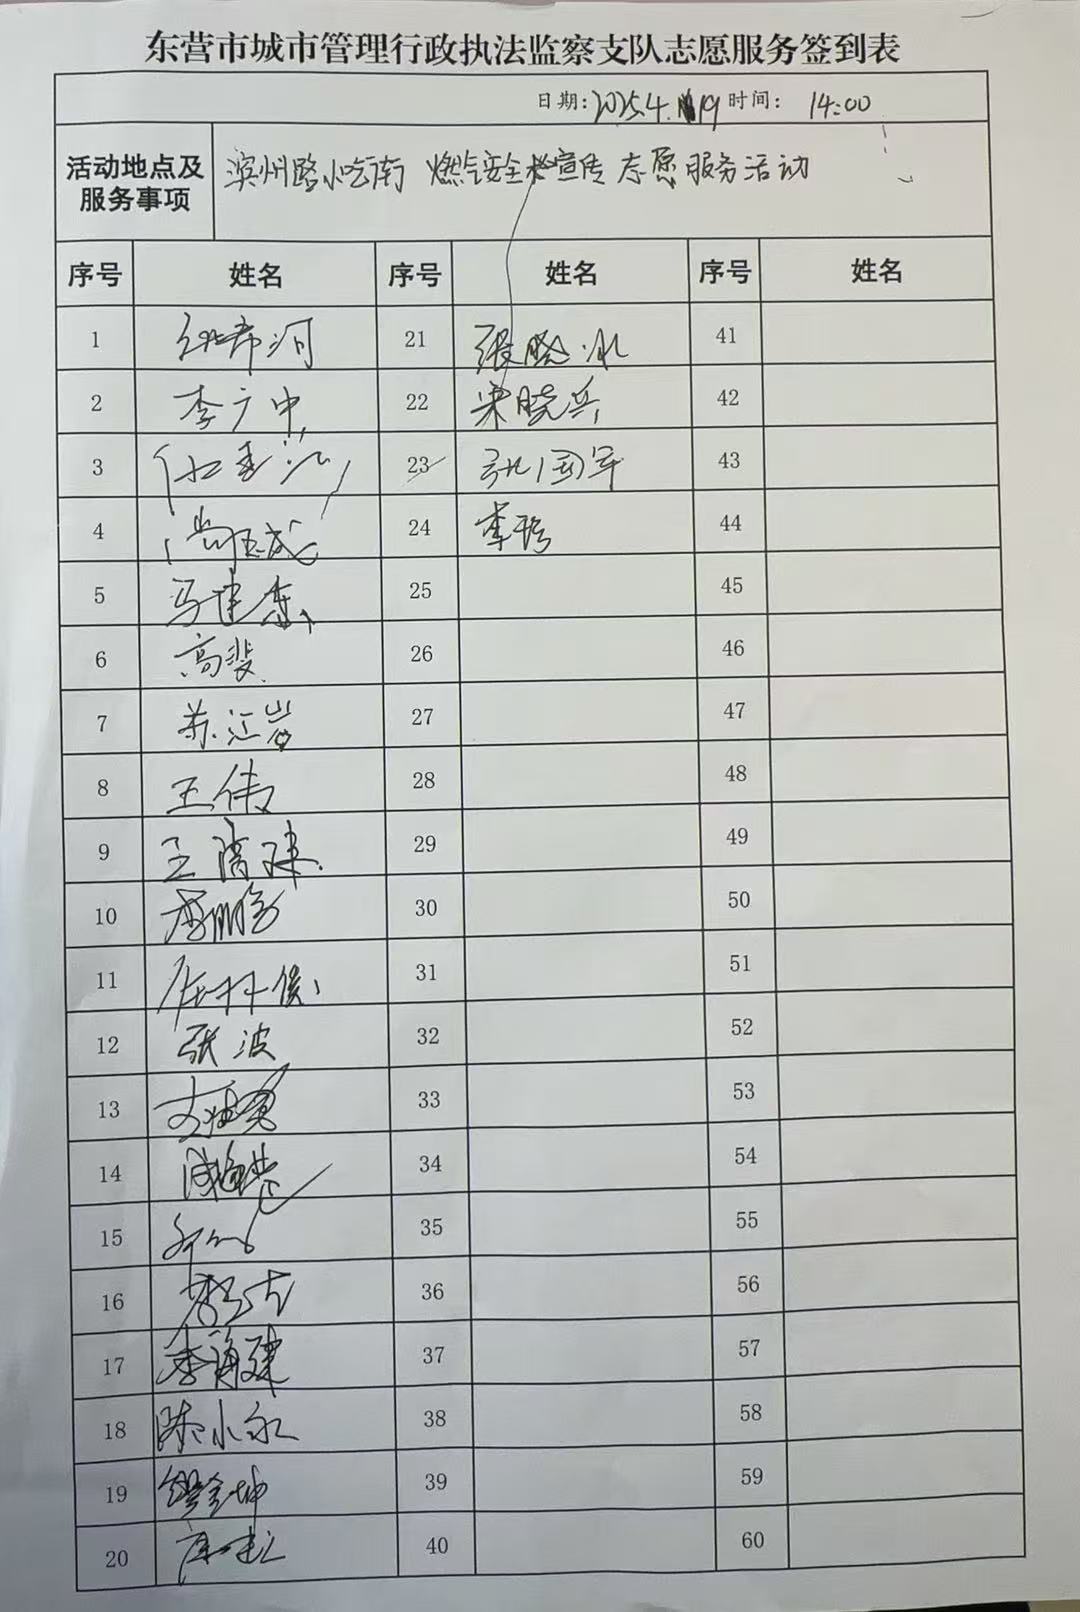 东营市城市管理行政执法监察支队志愿服务签到表
日期:2025.4.19 时间: 14:00
活动地点及服务事项 滨州路小吃街 燃气安全宣传 志愿服务活动
序号 姓名 序号 姓名 序号 姓名
1 21 张晓冰 41
2 李广中 22 宋晓兵 42
3 23 张国军 43
4 尚玉成 24 李玲 44
5 冯建东 25 45
6 高斐 26 46
7 苏江岩 27 47
8 王伟 28 48
9 王清建 29 49
10 李鹏 30 50
11 31 51
12 张波 32 52
13 33 53
14 34 54
15 35 55
16 36 56
17 李海建 37 57
18 陈小永 38 58
19 39 59
20 40 60